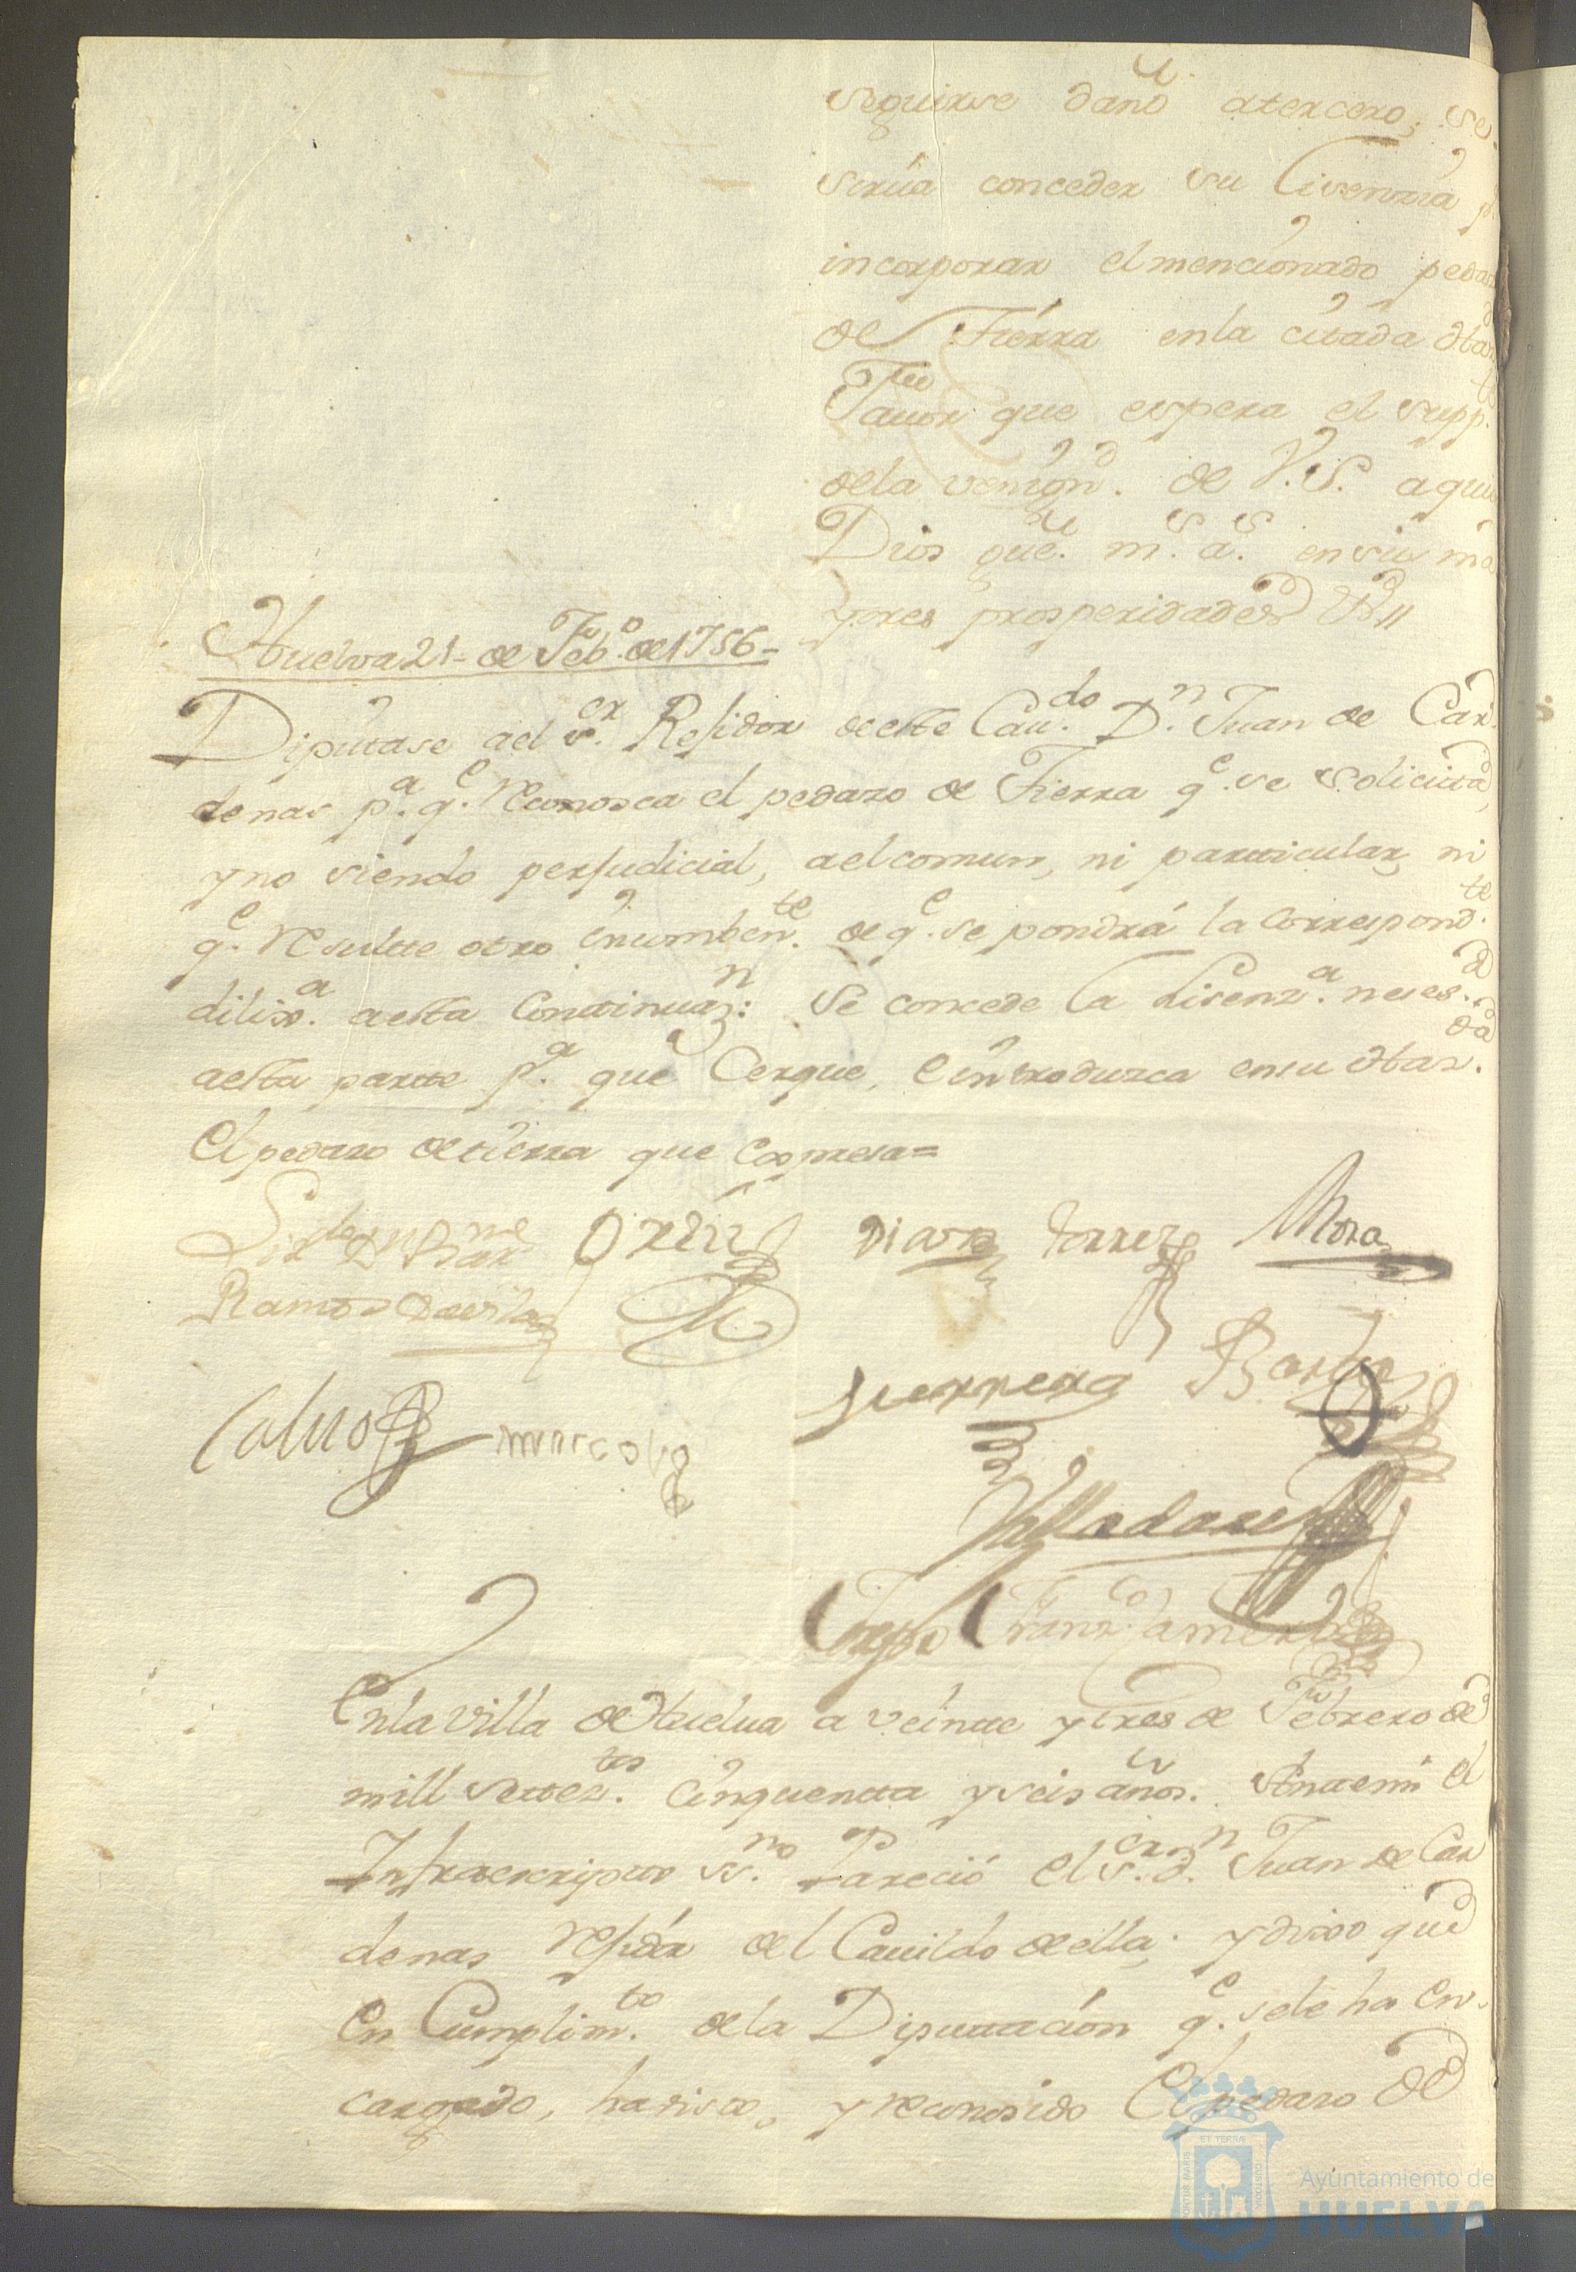 seguirse daño atercero, se
sirua conceder su Lisenzia p
incorporar elmencionado pedas
de Tierra enla citada Hâs
fauor que espera el supp.te
dela venign.d de V.S. a quien
Dios gûe. m.s a.s ensus ma
yores prosperidades &ª
Huelva 21 de Feb.o de 1756
Diputase ael s.or Rejidor deeste Cau.do D.n Juan de Car
denas p.a q.e Reconosca el pedazo de Tierra q.e se solicita,
y no siendo perjudicial, ael comun, ni particular, ni
q.e Resulte otro incomben.te de q.e se pondrá la correspond.te
dilix.a aesta Continuaz.n: Se concede la Lisenz.a neces.a
aesta parte p.a que Cerque, e introdusca ensu Hâz.da
el pedazo detierra que expresa=
Liz.do D.n
Ramos Davila
Ortiz
Diaz
Torres
Mora
Calvo
Marcos
Herrera
Valladares
Fran.co
Enla Villa de Huelua a veinte ytres de Febrero de
mill settez.tos cinquenta y seis años. Antemi el
Infraescripto ss.no Pareció el s.or d.n Juan de Car
denas rejidor del Cauildo deella; y dixo que
en Cumplim.to dela Diputtación q.e sele ha en
cargado, ha visto, y reconosido el pedazo de
ET TERRÆ
PORTUS MARIS
CUSTODIA
Ayuntamiento de
HUELVA